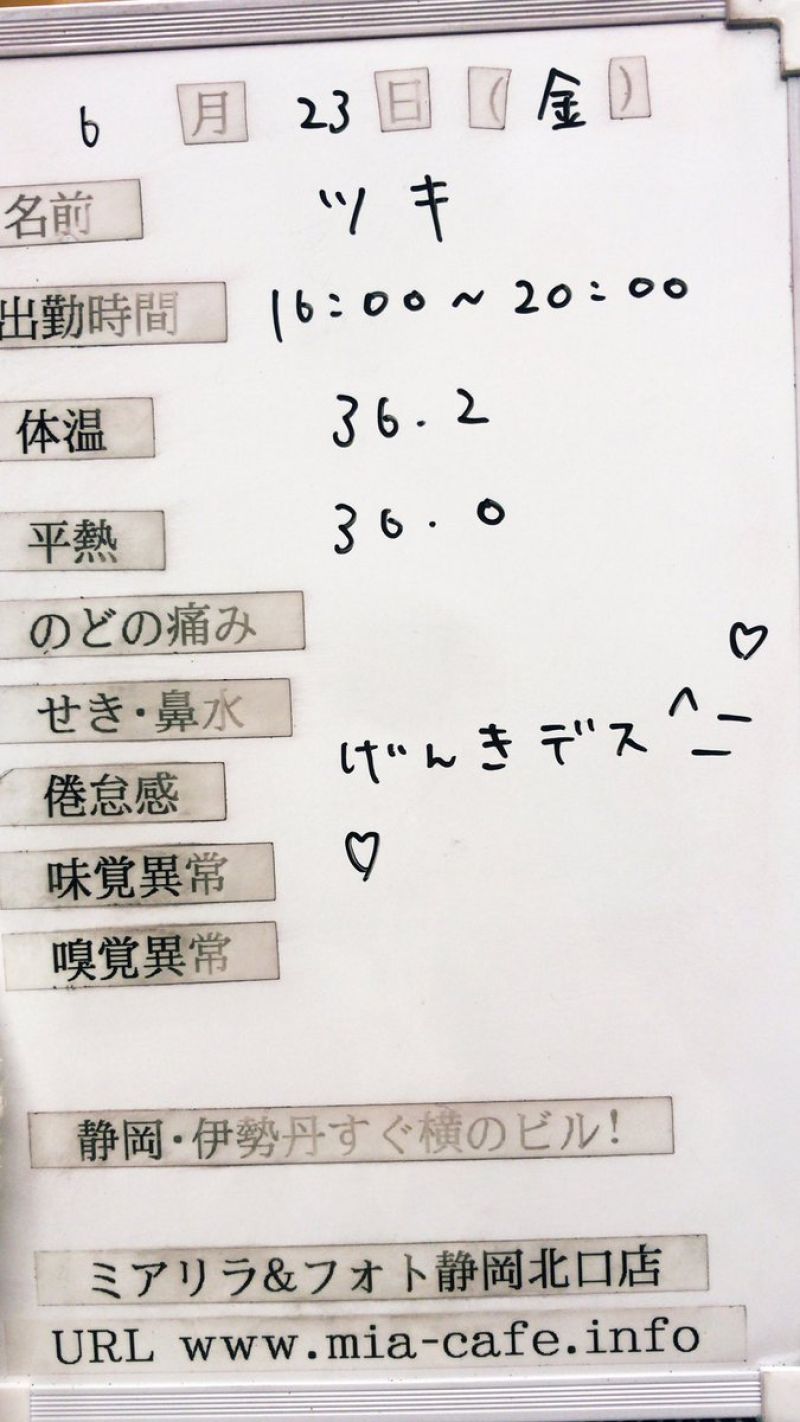 6月23日(金)
名前 ツキ
出勤時間 16:00~20:00
体温 36.2
平熱 36.0
のどの痛み
♡
せき・鼻水
げんきデス^_−
倦怠感
味覚異常 ♡
嗅覚異常
静岡・伊勢丹すぐ横のビル!
ミアリラ&フォト静岡北口店
URL www.mia-cafe.info